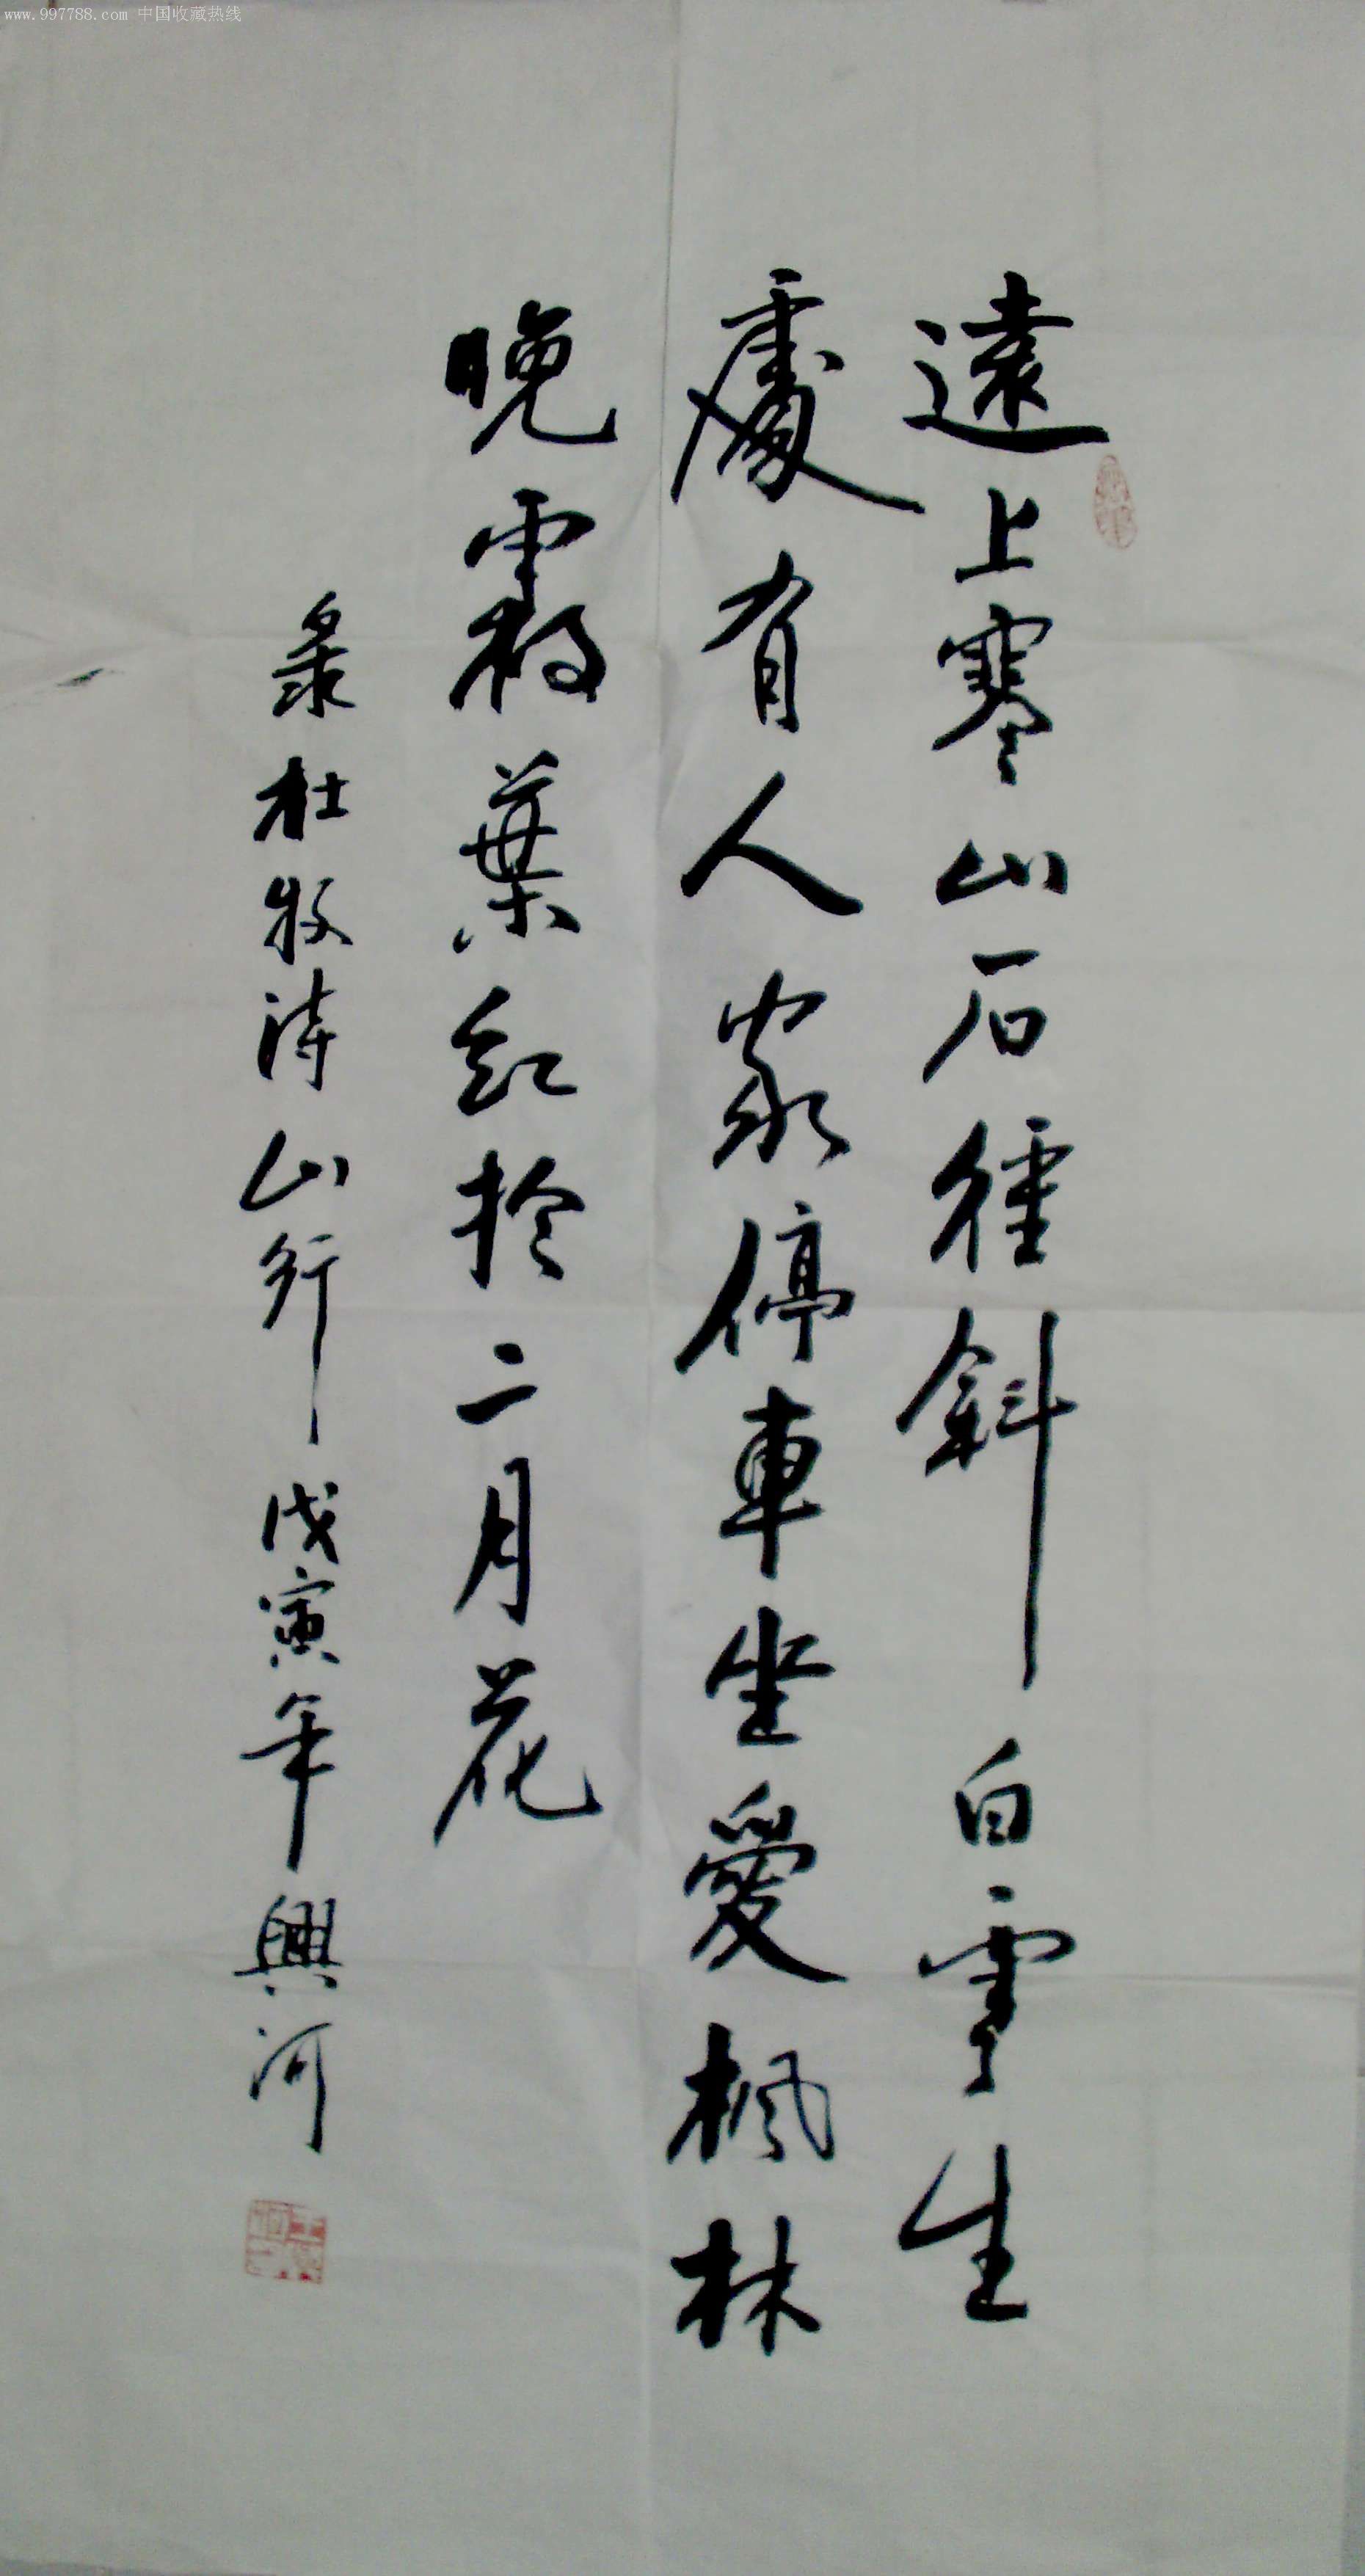 www.997788.com 中国收藏热线
遠上寒山石徑斜白雲生
處有人家停車坐愛楓林
晚霜葉紅於二月花
录杜牧詩山行戊寅年興河